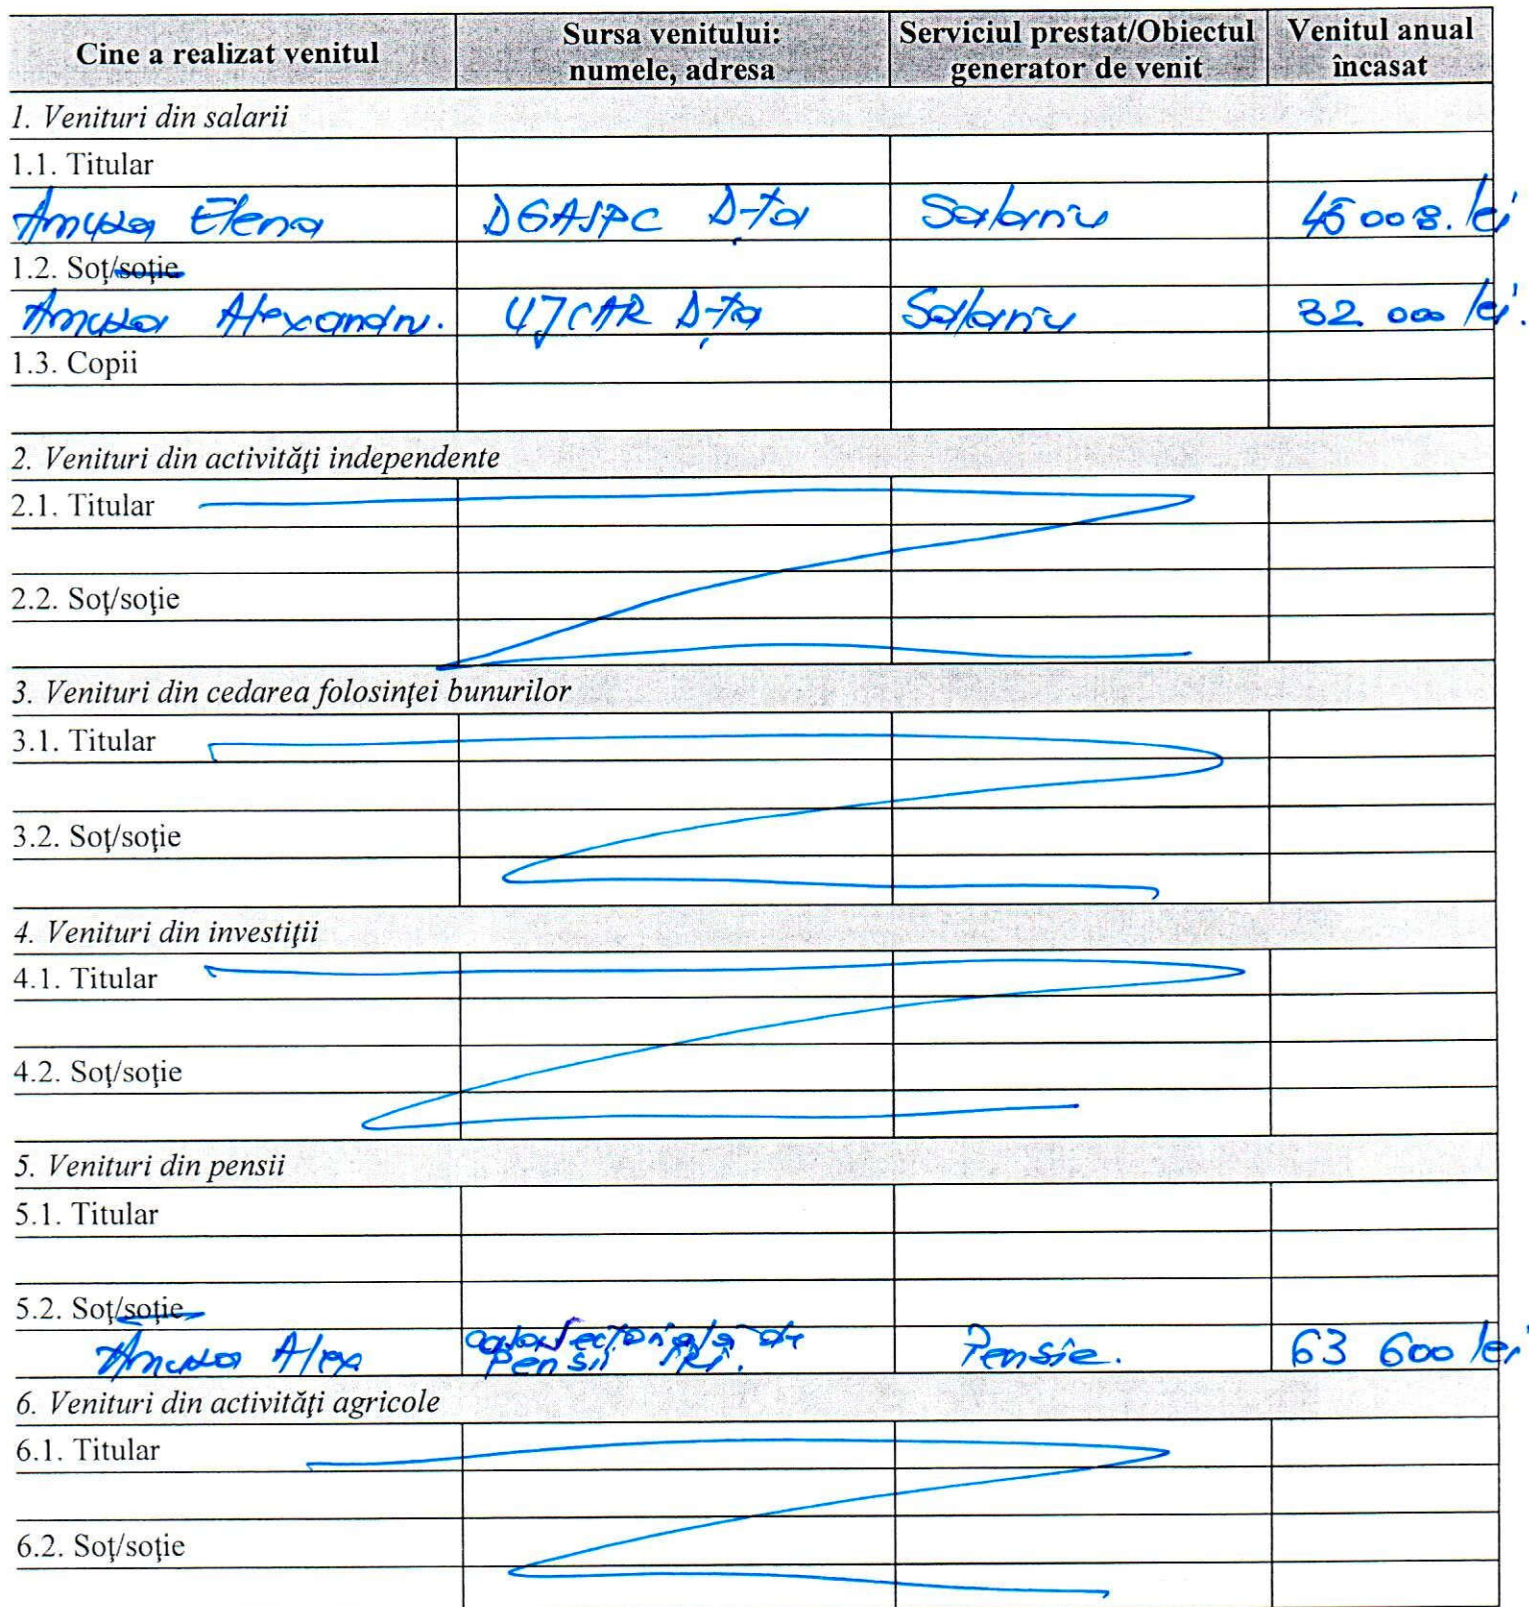 Cine a realizat venitul
Sursa venitului:
numele, adresa
Serviciul prestat/Obiectul
generator de venit
Venitul anual
încasat
1. Venituri din salarii
1.1. Titular
Elena DGASPC D-ța Salariu lei
1.2. Soț/soție
Alexandru. UJCAR D-ța Salariu 32 000 lei.
1.3. Copii
2. Venituri din activităţi independente
2.1. Titular
2.2. Soţ/soţie
3. Venituri din cedarea folosinţei bunurilor
3.1. Titular
3.2. Soţ/soţie
4. Venituri din investiţii
4.1. Titular
4.2. Soţ/soţie
5. Venituri din pensii
5.1. Titular
5.2. Soţ/soţie
Alex de pensii Pensie. 63 600 lei
6. Venituri din activităţi agricole
6.1. Titular
6.2. Soţ/soţie